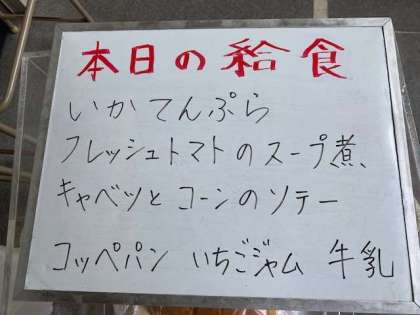 本日の給食
いかてんぷら
フレッシュトマトのスープ煮、
キャベツとコーンのソテー
コッペパン いちごジャム 牛乳